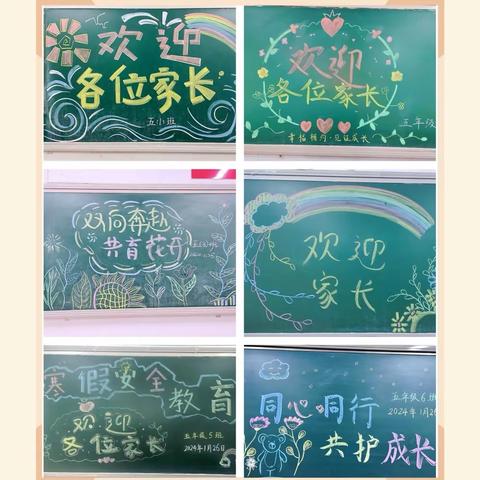 欢迎
各位家长
五小班
欢迎
各位家长
五年级
幸福相约·见证成长
双向奔赴
共育花开
欢迎
家长
寒假安全
教育
欢迎
各位家长
五年级5班
2024年1月26日
同心同行
共护成长
五年级6班
2024年1月26